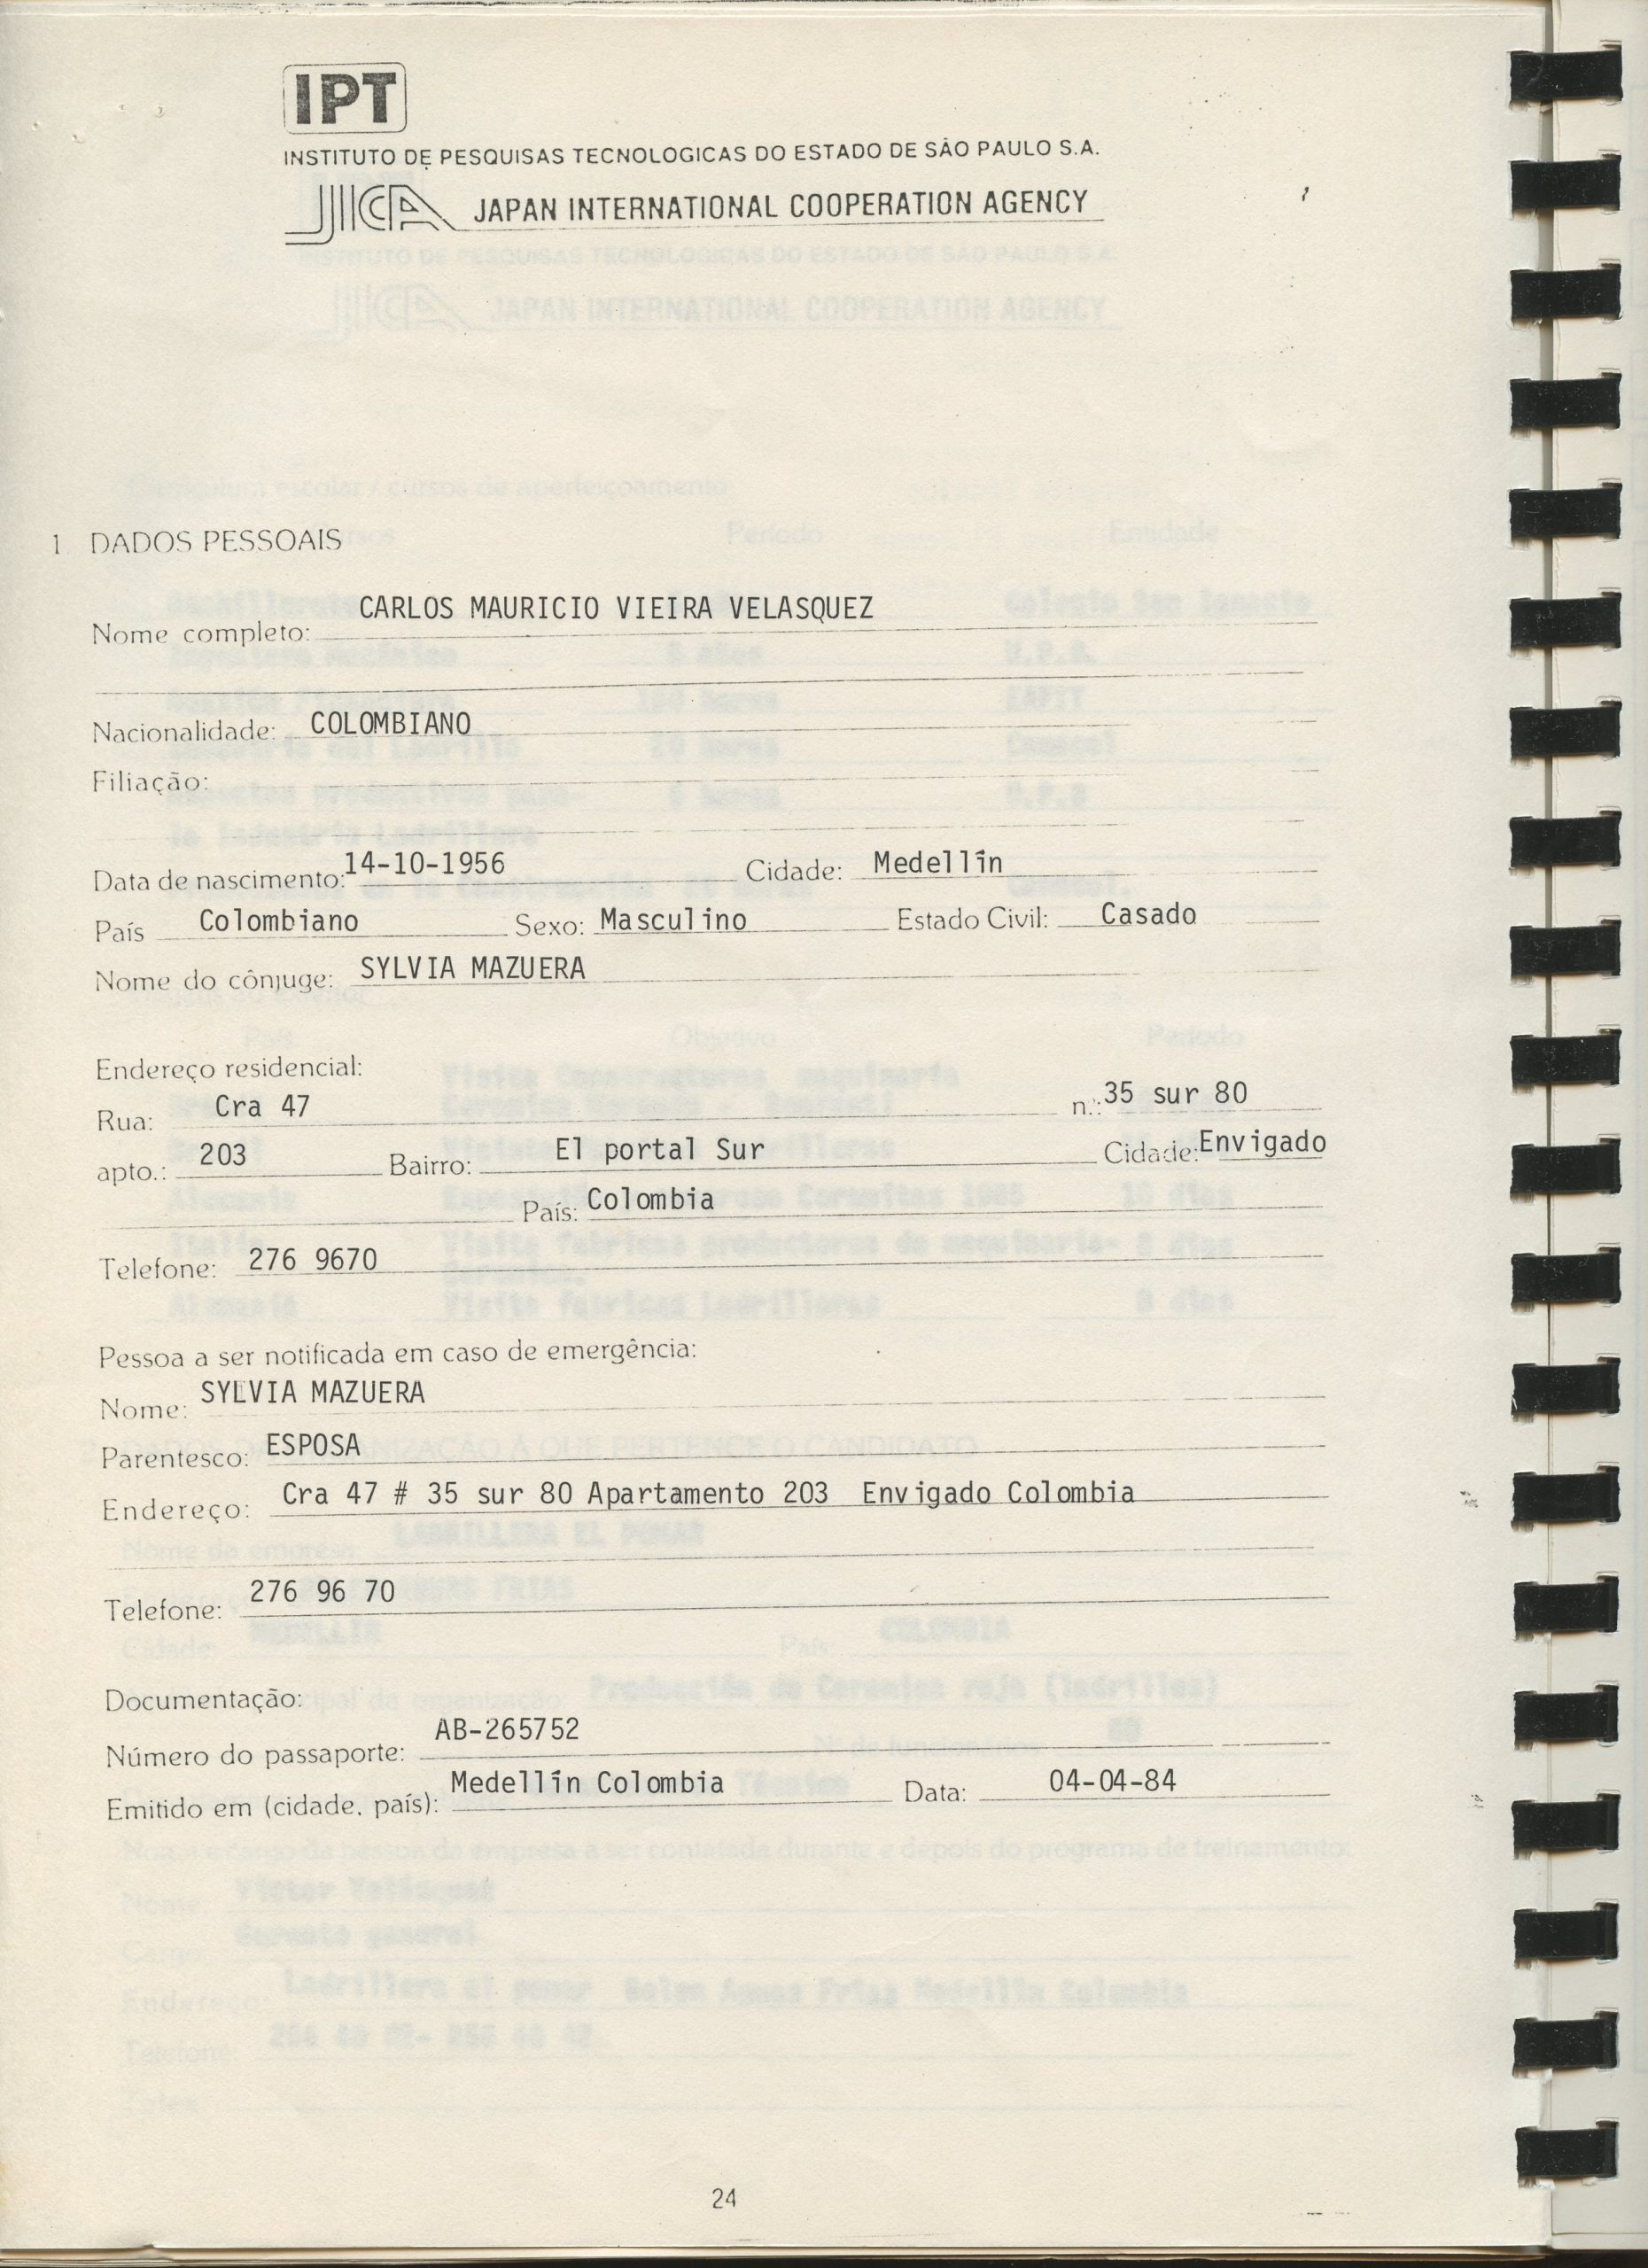 IPT
INSTITUTO DE PESQUISAS TECNOLOGICAS DO ESTADO DE SÃO PAULO S.A.
JICA JAPAN INTERNATIONAL COOPERATION AGENCY
1. DADOS PESSOAIS
Nome completo: CARLOS MAURICIO VIEIRA VELASQUEZ
Nacionalidade: COLOMBIANO
Filiação:
Data de nascimento: 14-10-1956 Cidade: Medellín
País Colombiano Sexo: Masculino Estado Civil: Casado
Nome do cônjuge: SYLVIA MAZUERA
Endereço residencial:
Rua: Cra 47 n.: 35 sur 80
apto.: 203 Bairro: El portal Sur Cidade: Envigado
País: Colombia
Telefone: 276 9670
Pessoa a ser notificada em caso de emergência:
Nome: SYLVIA MAZUERA
Parentesco: ESPOSA
Endereço: Cra 47 # 35 sur 80 Apartamento 203 Envigado Colombia
Telefone: 276 96 70
Documentação:
Número do passaporte: AB-265752
Emitido em (cidade, país): Medellín Colombia Data: 04-04-84
24